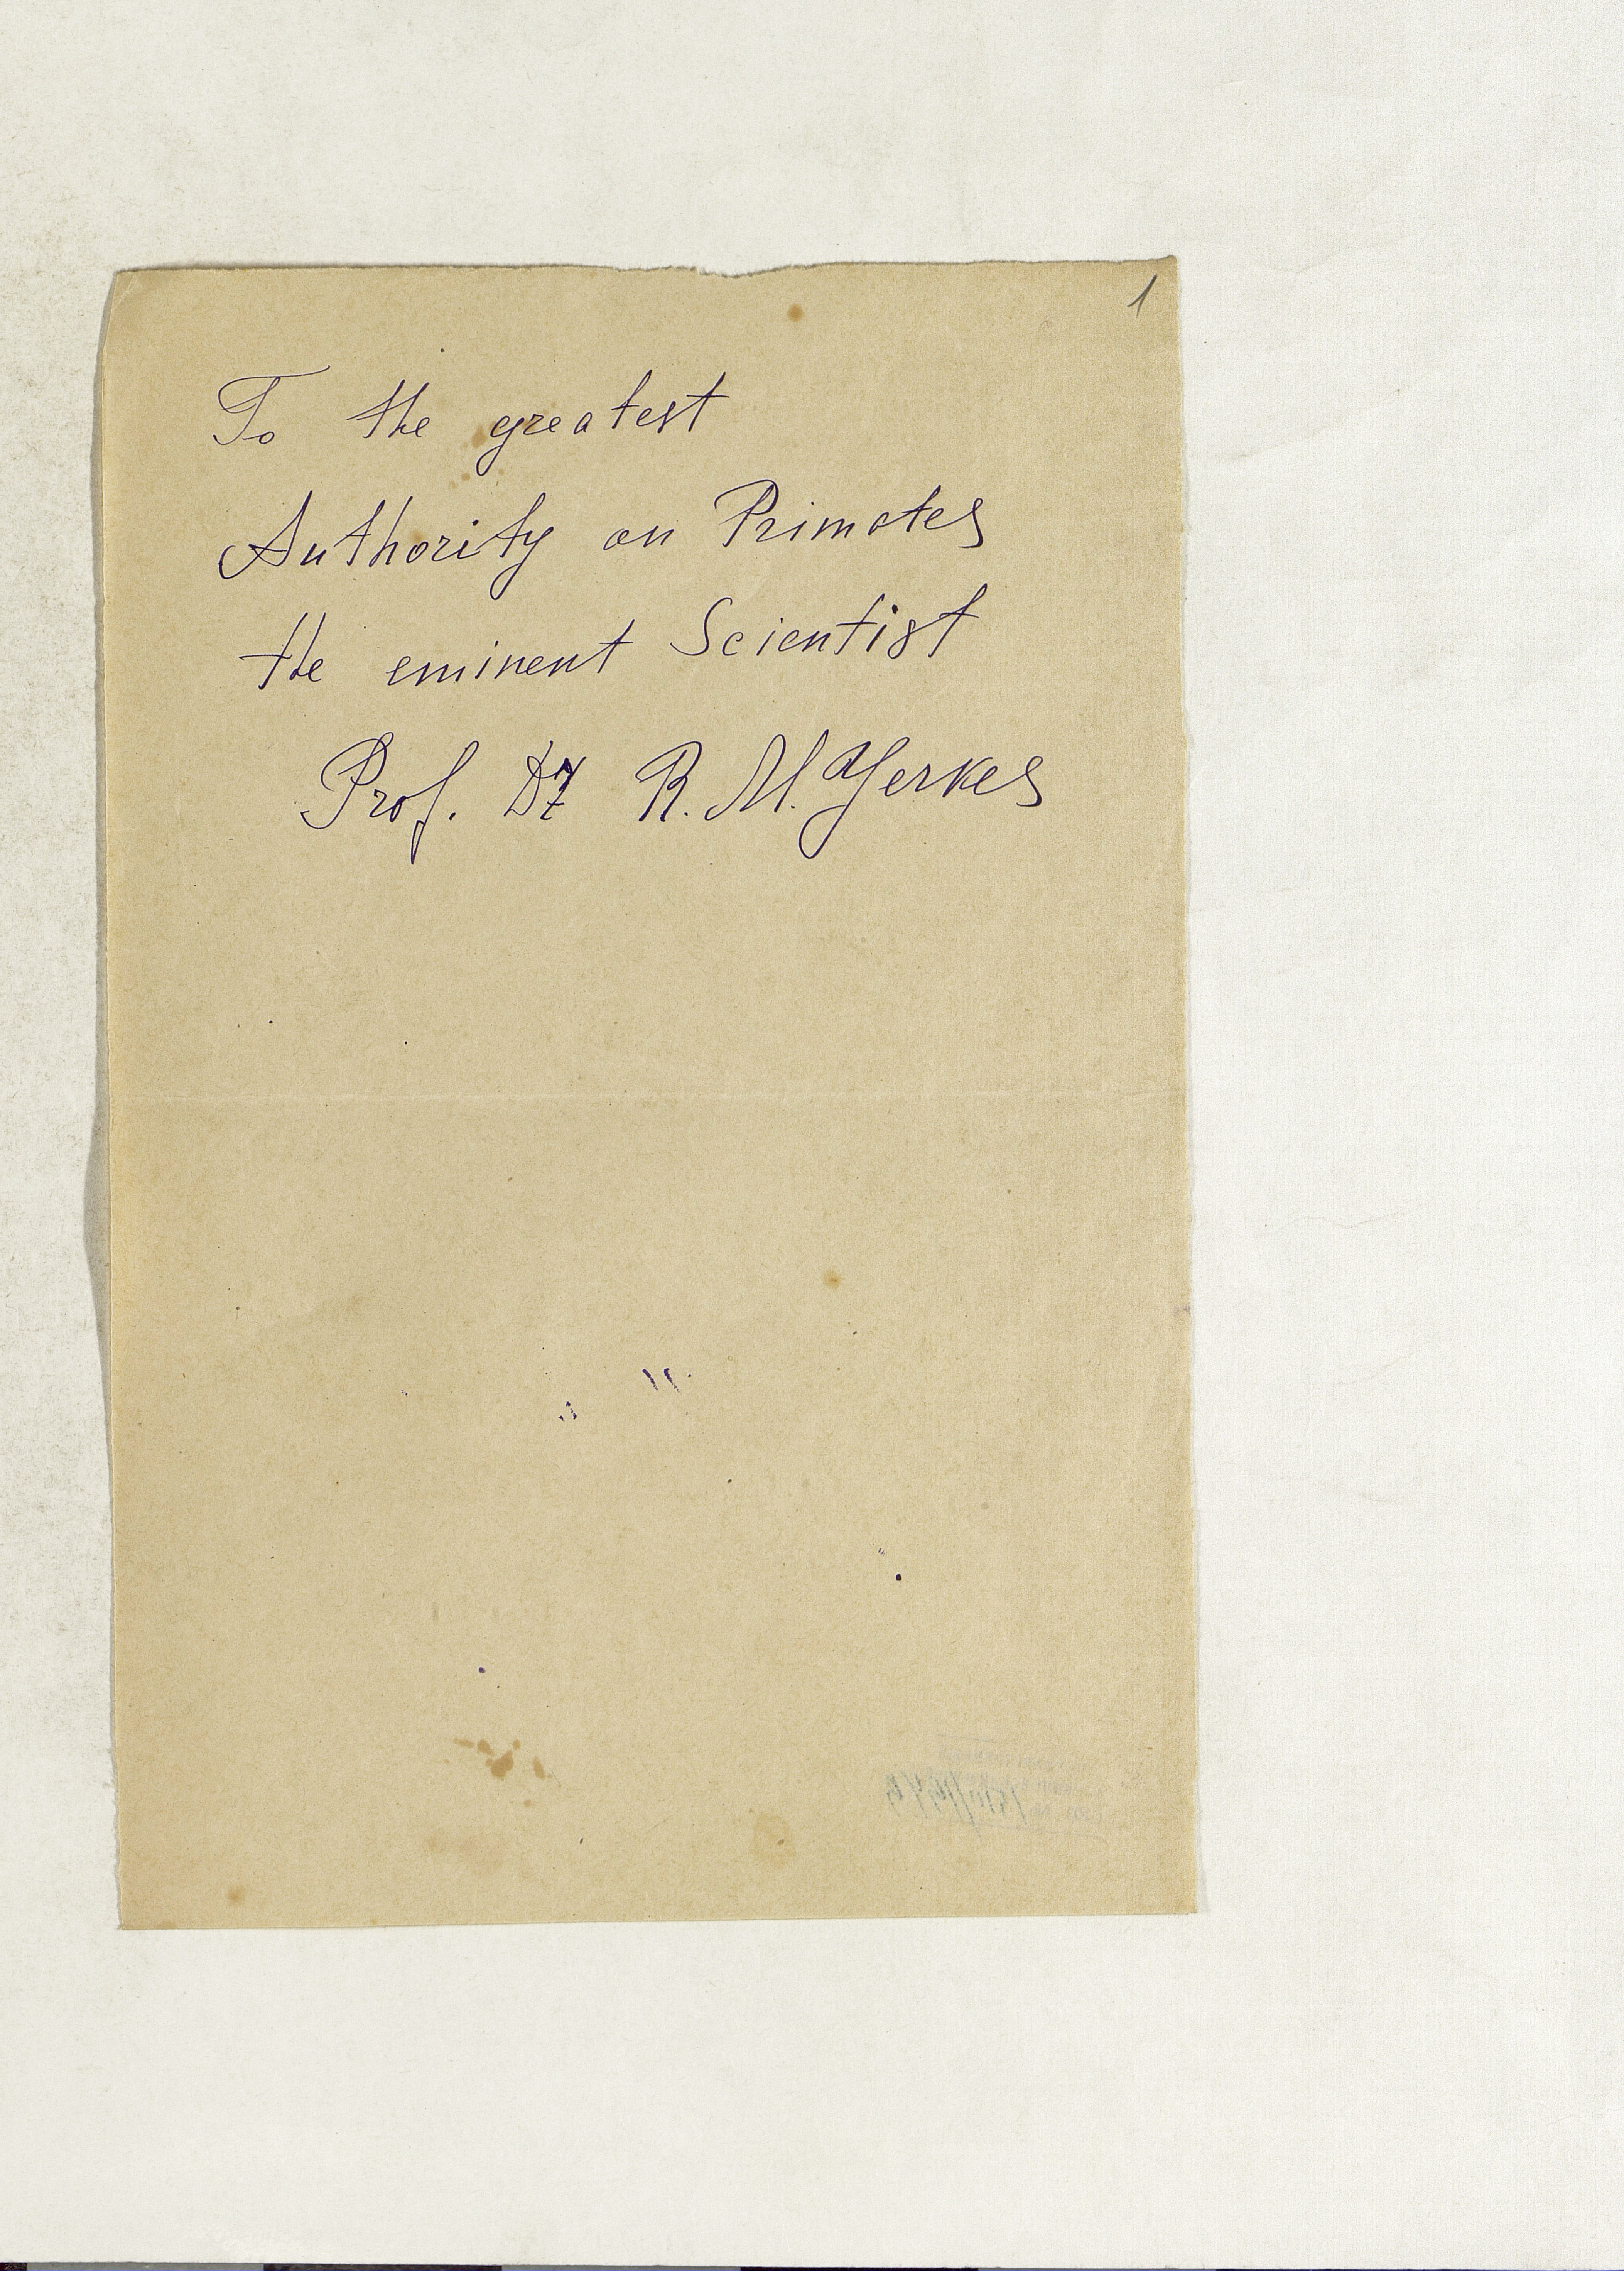 1
To the greatest
Authority on Primates
the eminent Scientist
Prof. Dr R. M. Yerkes